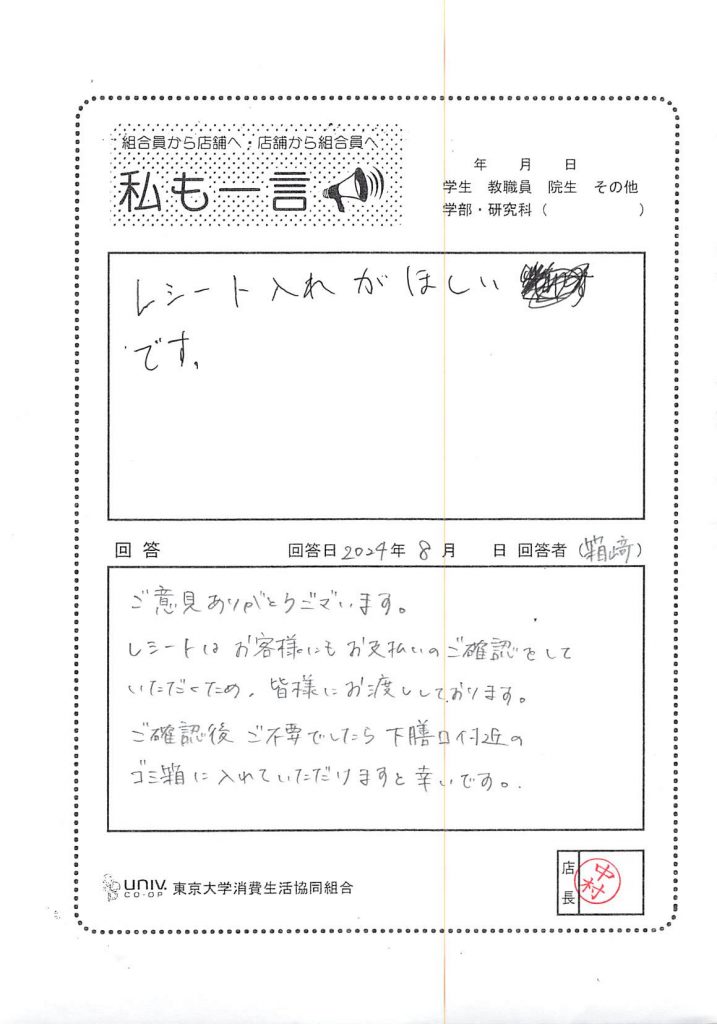 組合員から店舗へ・店舗から組合員へ
私も一言
年 月 日
学生 教職員 院生 その他
学部・研究科( )
レシート入れがほしい
です。
回答 回答日2024年 8月 日 回答者(箱﨑)
ご意見ありがとうございます。
レシートはお客様にもお支払いのご確認をして
いただくため、皆様にお渡ししております。
ご確認後 ご不要でしたら下膳口付近の
ゴミ箱に入れていただけますと幸いです。
UNIV. CO-OP 東京大学消費生活協同組合
店長
中村